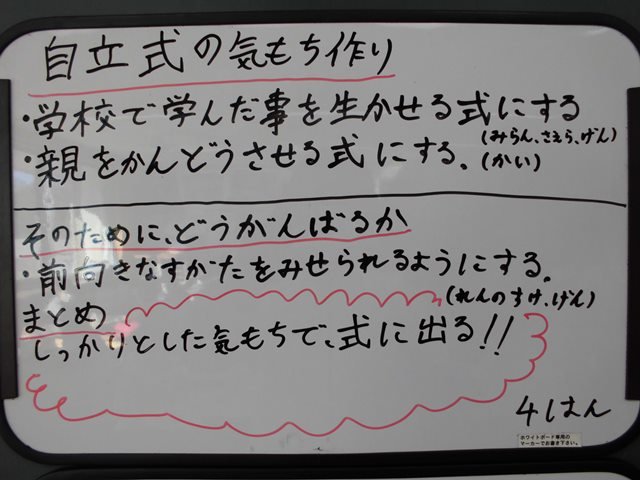 自立式の気もち作り
・学校で学んだ事を生かせる式にする
(みらん、さえら、げん)
・親をかんどうさせる式にする。(かい)
そのために、どうがんばるか
・前向きなすがたをみせられるようにする。
(れんのすけ、げん)
まとめ
しっかりとした気もちで、式に出る!!
4はん
ホワイトボード専用の
マーカーでお書き下さい。